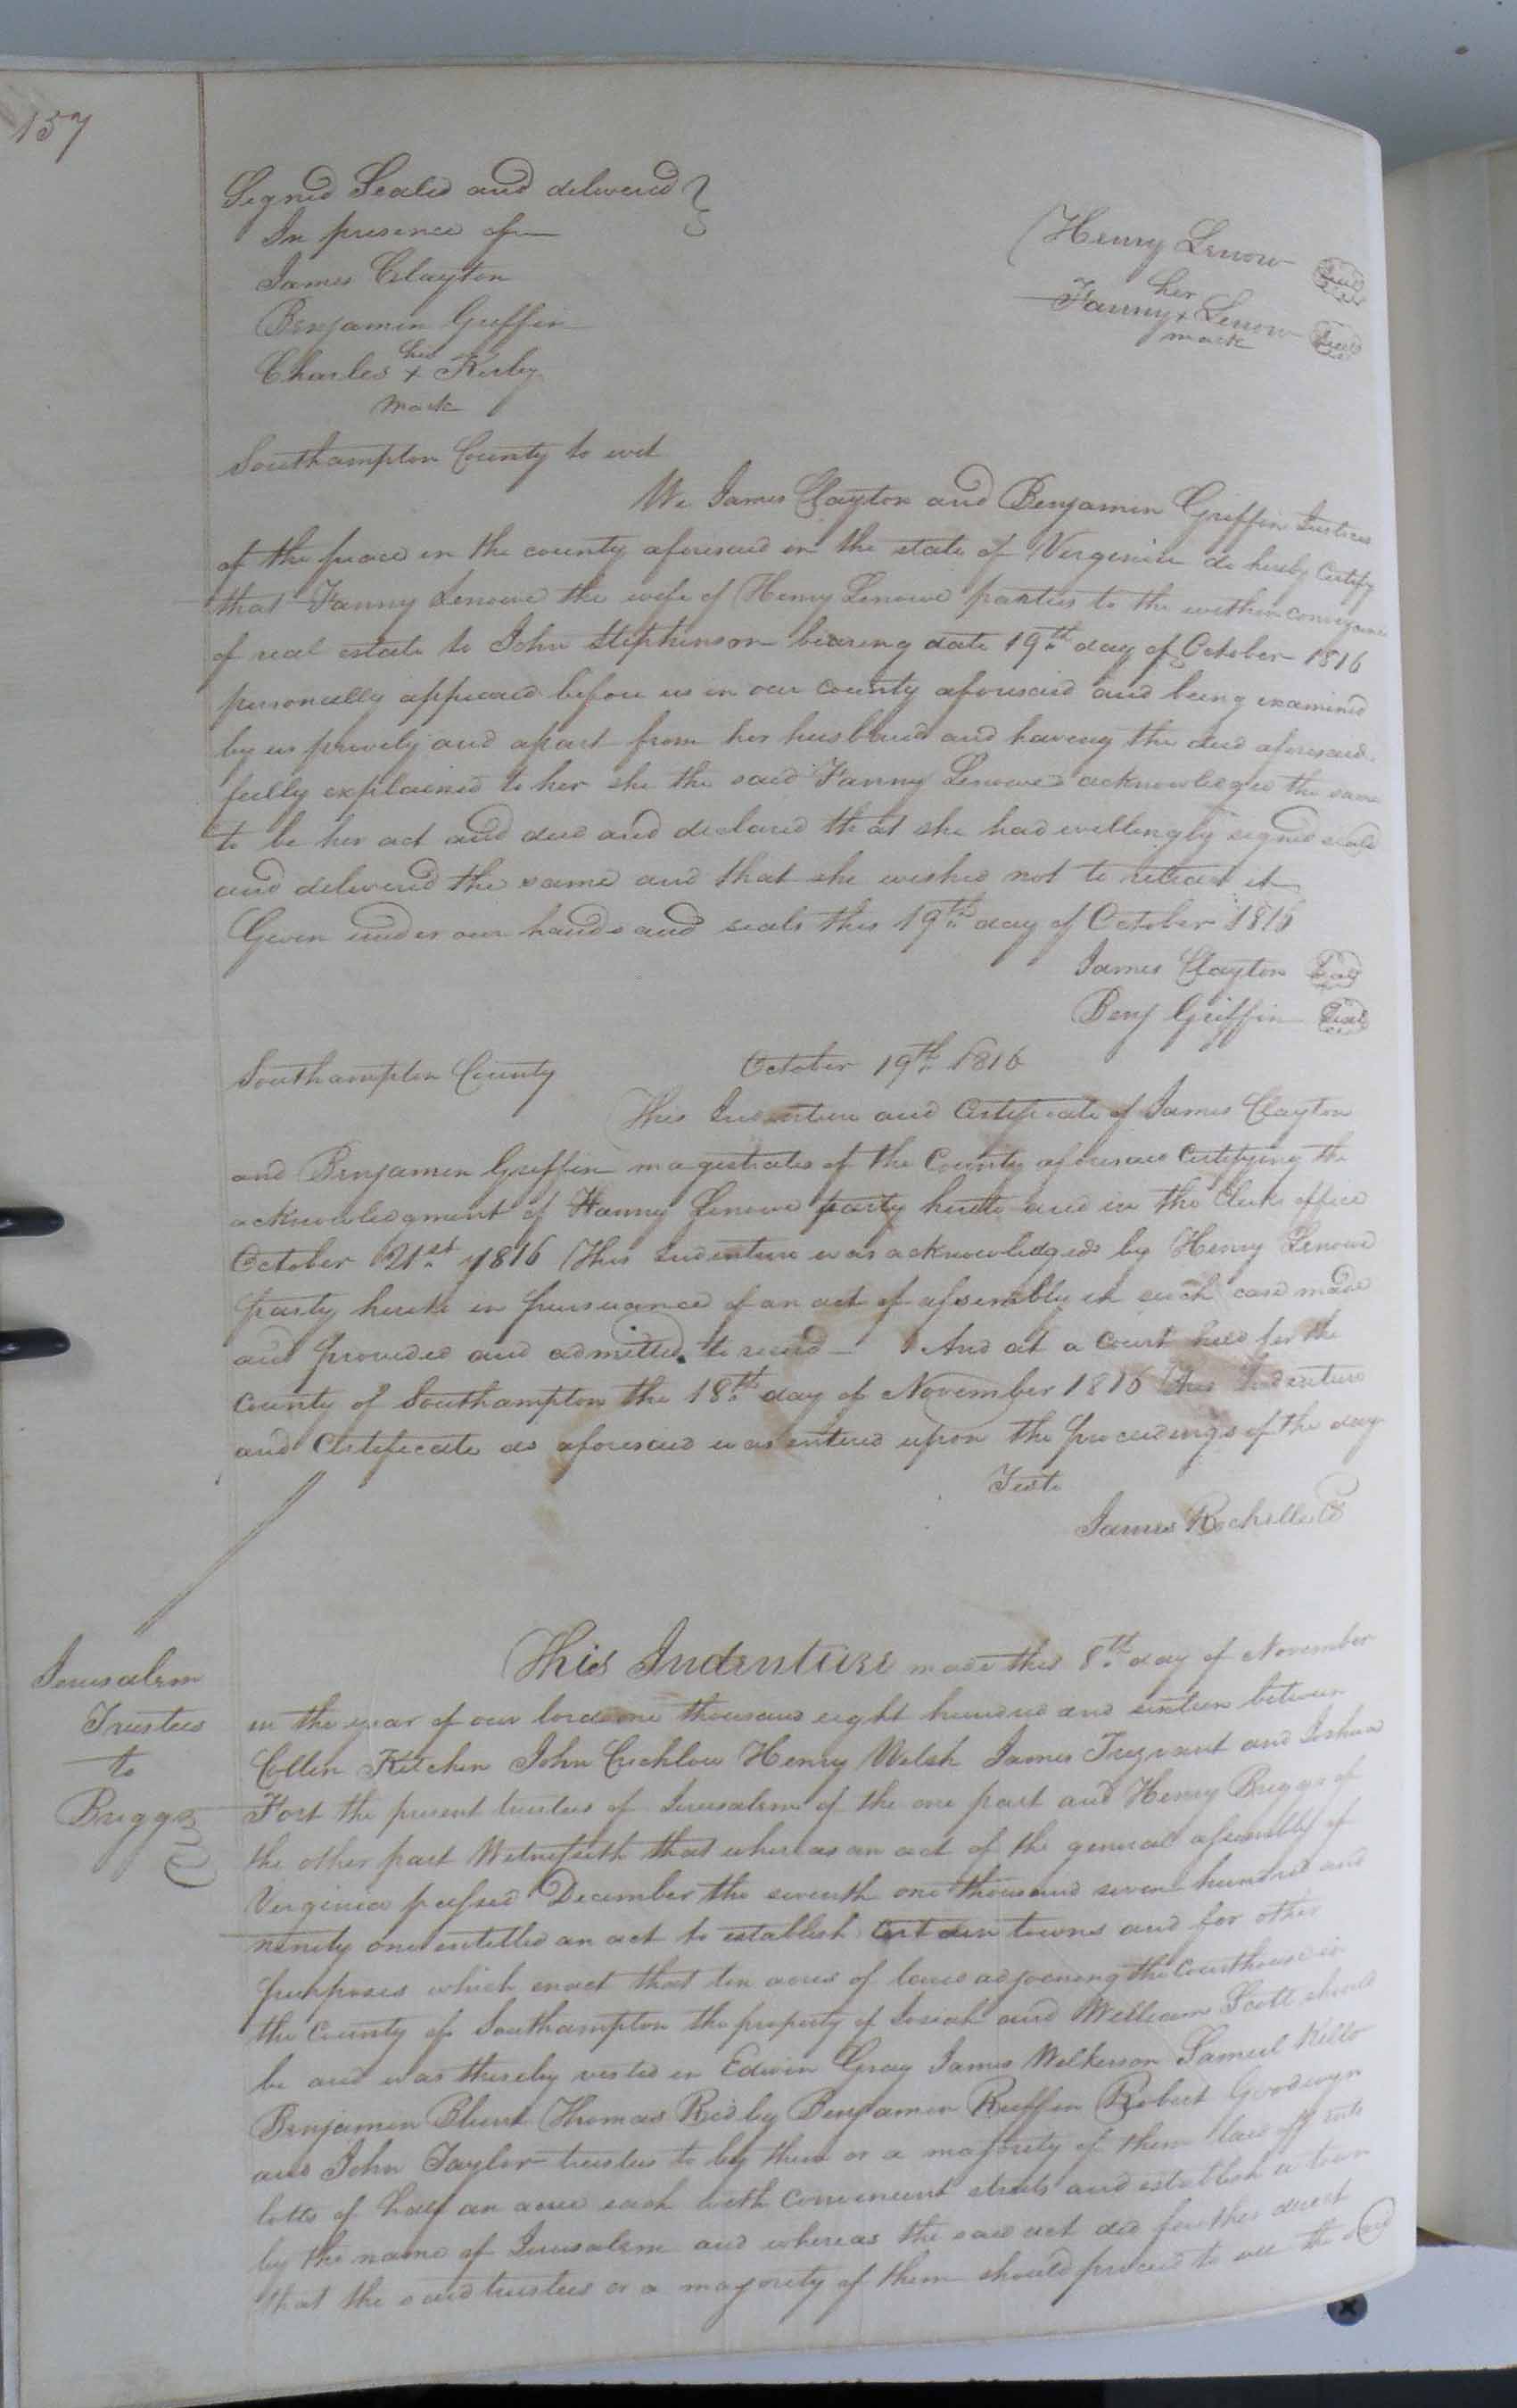 157
Signed Sealed and delivered
In presence of
James Clayton
Benjamin Griffin
his
Charles + Kirby
mark
Henry Lenow Seal
her
Fanny + Lenow Seal
mark
Southampton County to wit
We James Clayton and Benjamin Griffin Justices
of the peace in the county aforesaid in the state of Virginia do hereby Certify
that Fanny Lenowe the wife of Henry Lenowe parties to the within conveyance
of real estate to John Stephenson bearing date 19th day of October 1816
personally appeared before us in our county aforesaid and being examined
by us privily and apart from her husband and having the deed aforesaid
fully explained to her she the said Fanny Lenowe acknowledged the same
to be her act and deed and declared that she had willingly signed seald
and delivered the same and that she wished not to retract it
Given under our hands and seals this 19th day of October 1816
James Clayton Seal
Benj Griffin Seal
Southampton County October 19th 1816
This Indenture and Certificate of James Clayton
and Benjamin Griffin magistrates of the County aforesaid Certifying the
acknowledgment of Fanny Lenowe party hereto and in the Clerks office
October 21st 1816 This Indenture was acknowledged by Henry Lenowe
party hereto in pursuance of an act of assembly in such case made
and provided and admitted to record And at a Court held for the
County of Southampton the 18th day of November 1816 This Indenture
and Certificate as aforesaid was entered upon the proceedings of the day
Teste
James Rochelle C
Jerusalem
Trustees
to
Briggs
This Indenture made this 8th day of November
in the year of our lord one thousand eight hundred and sixteen between
Collin Kitchen John Crichlow Henry Welsh James Trezvant and Joshua
Fort the present trustees of Jerusalem of the one part and Henry Briggs of
the other part Witnesseth that whereas an act of the general assembly of
Virginia passed December the seventh one thousand seven hundred and
ninety one entitled an act to establish Certain towns and for other
purposes which enact that ten acres of land adjoening the Courthouse in
the County of Southampton the property of Josiah and William Scott should
be and was thereby vested in Edwin Gray James Wilkerson Samuel Kello
Benjamin Blunt Thomas Ridley Benjamin Ruffin Robert Goodwyn
and John Taylor trustees to by them or a majority of them laid off into
lotts of half an acre each with Convenient streets and establish a town
by the name of Jerusalem and whereas the said act did further direct
that the said trustees or a majority of them should proceed to sell the said